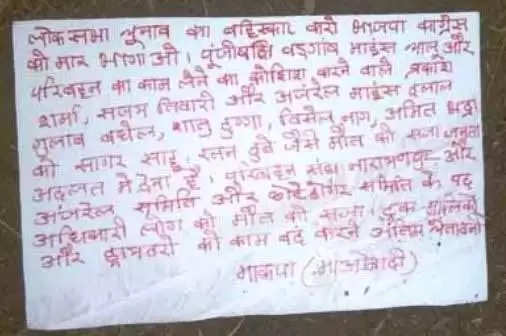 लोक सभा चुनाव का बहिस्कार करो भाजपा काग्रेस
को मार भागाओ। पूंजीपति बड़गांव माइंस चालु और
परिवहन का काम लेने का कोशिश करने वाले प्रकाश
शर्मा, संजय तिवारी और अंजरेल माइंस दलाल
गुलाब बघेल, शालु डुग्गा, विमल नाग, अमित भद्रा
को सागर साहु, रतन दुबे जैसे मौत की सजा जनता
अदालत में देना है। परिवहन संघ नारायणपुर और
अंजरेल समिति और कोहडोगर समिति के पद
अधिकारी लोग को मौत की सजा। ट्रक मालिको
और ड्राभरो को काम बंद करने अंतिम चेतावनी
भाकपा (माओवादी)